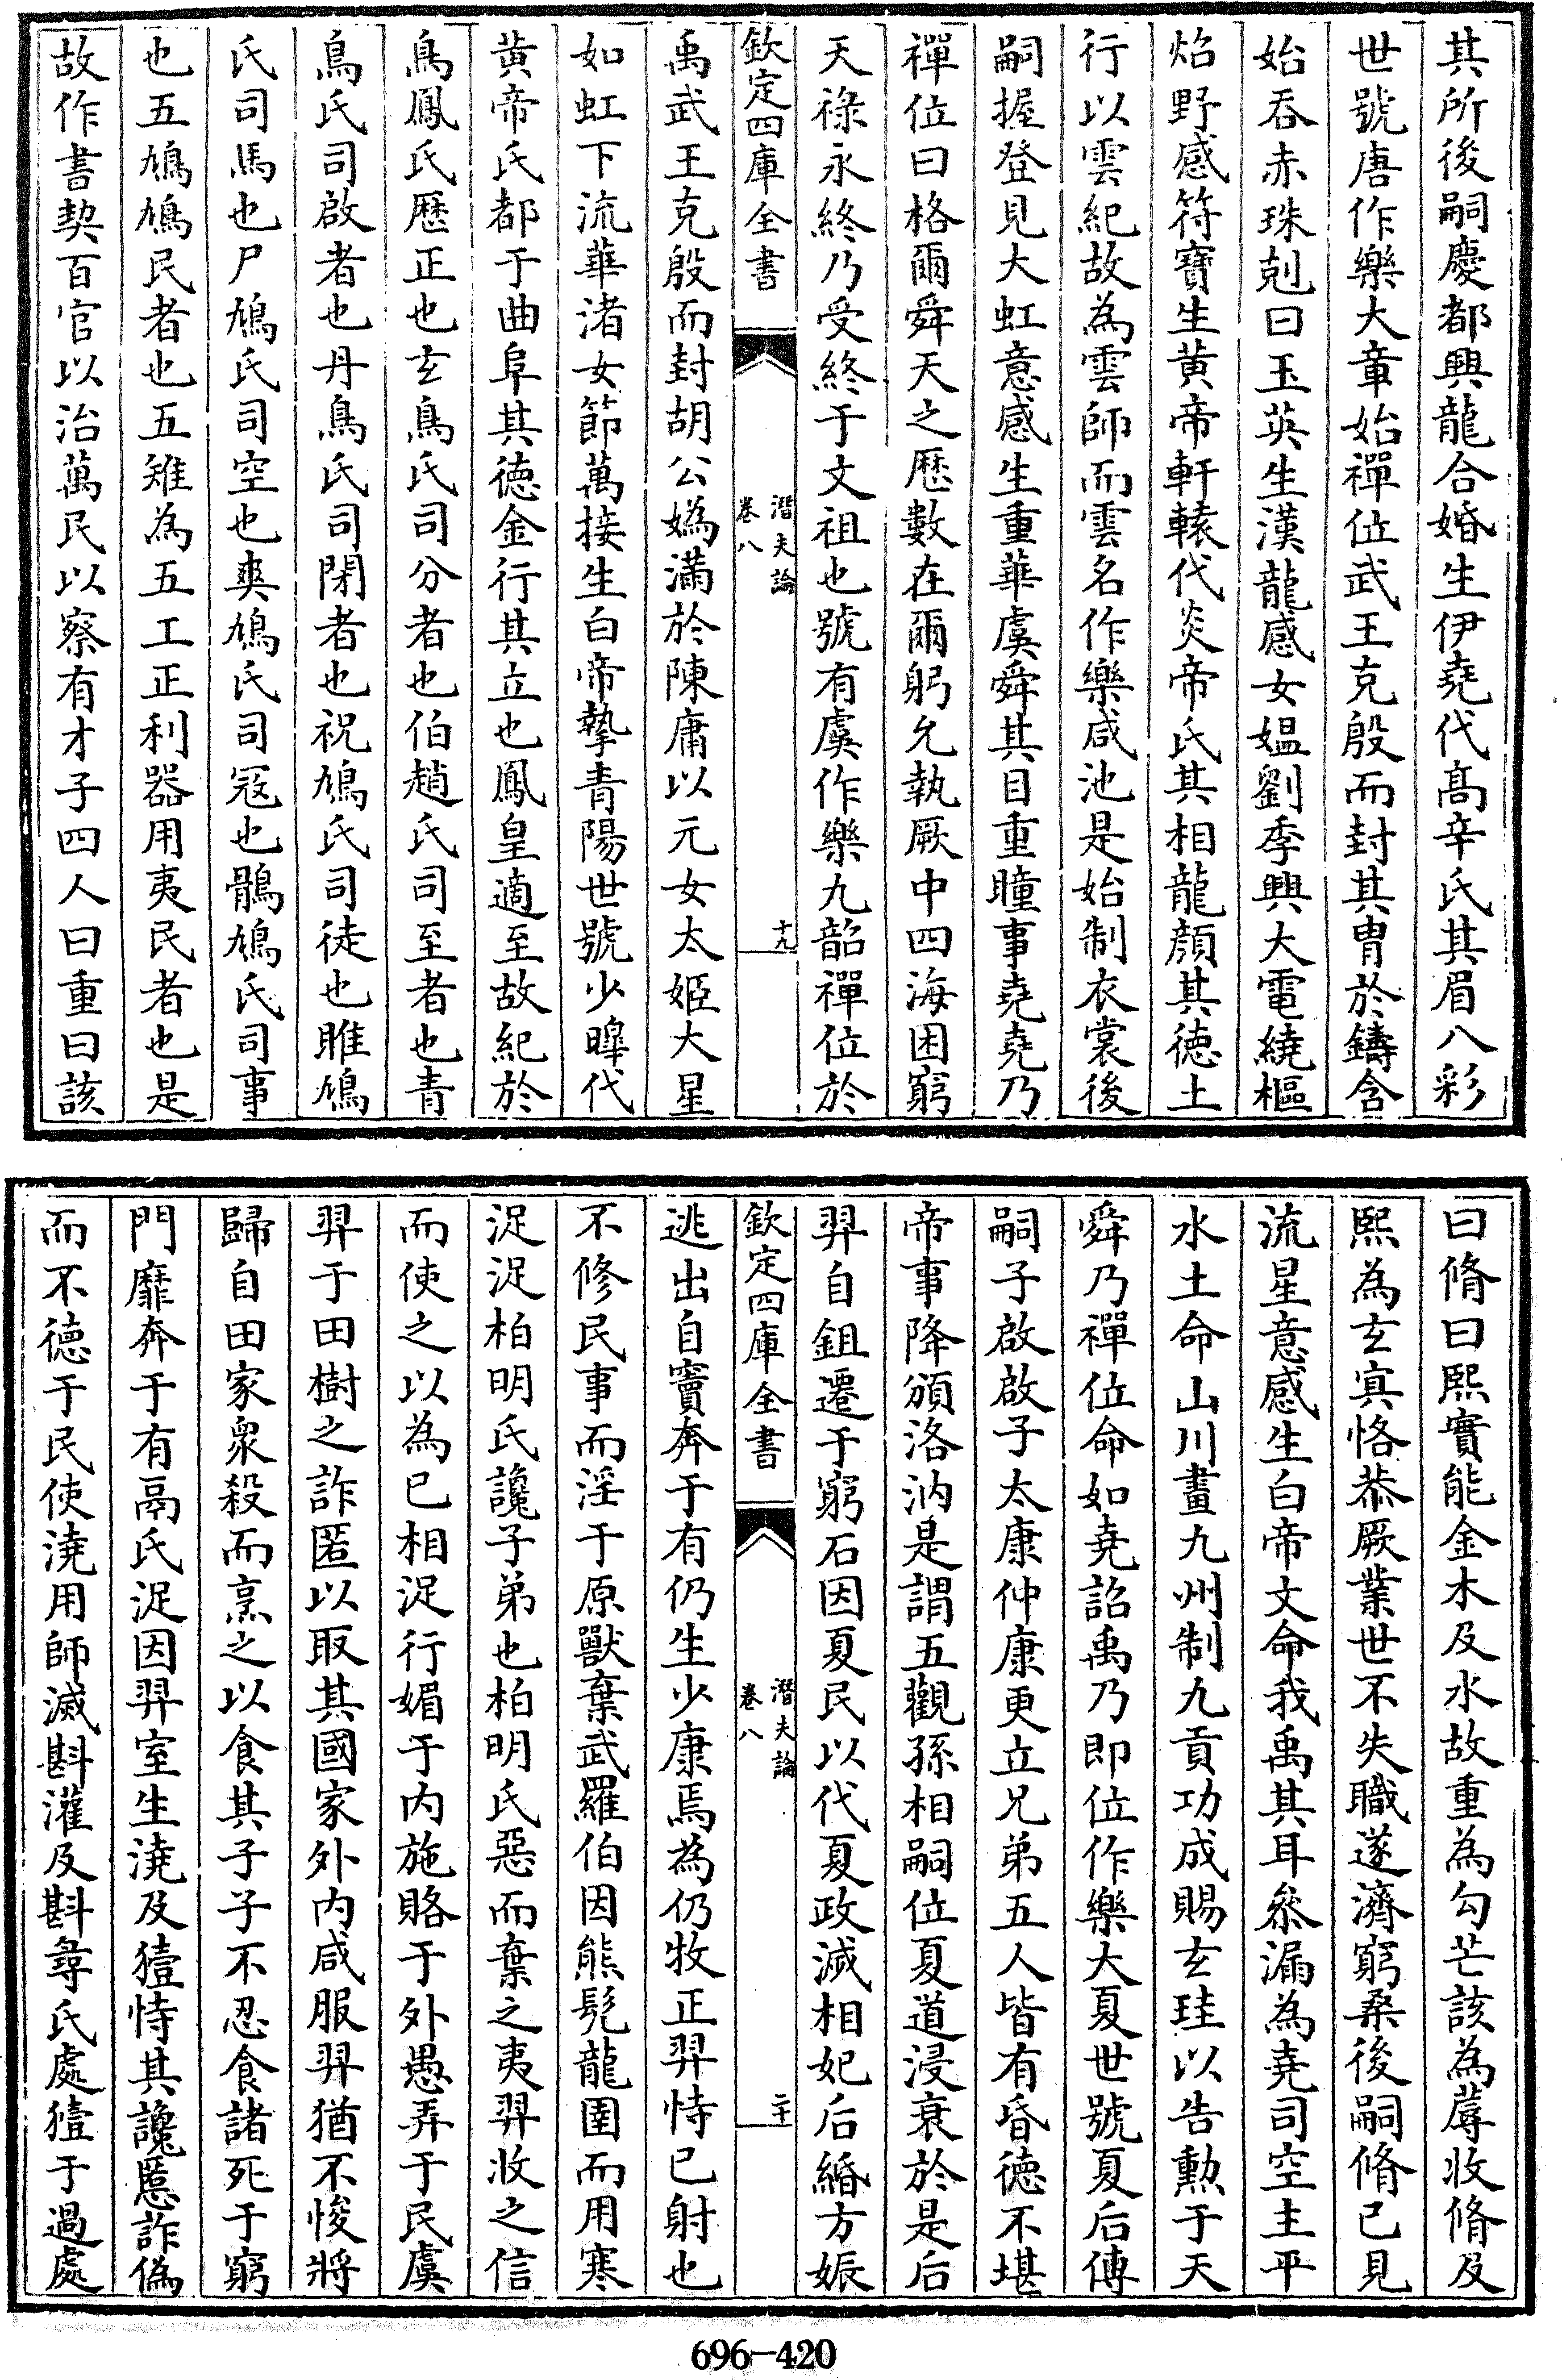 其所後嗣慶都興龍合婚生伊堯代髙辛氏其眉八彩
世號唐作樂大章始禪位武王克殷而封其胄於鑄含
始吞赤珠剋曰玉英生漢龍感女媼劉季興大電繞樞
炤野感符寶生黄帝軒轅代炎帝氏其相龍顔其徳土
行以雲紀故為雲師而雲名作樂咸池是始制衣裳後
嗣握登見大虹意感生重華虞舜其目重瞳事堯堯乃
禪位曰格爾舜天之厯數在爾躬允執厥中四海困窮
天禄永終乃受終于文祖也號有虞作樂九韶禪位於
欽定四庫全書
潛夫論
卷八
十九
禹武王克殷而封胡公媯滿於陳庸以元女太姬大星
如虹下流華渚女節萬接生白帝摯青陽世號少皥代
黄帝氏都于曲阜其徳金行其立也鳳皇適至故紀於
鳥鳳氏厯正也玄鳥氏司分者也伯趙氏司至者也青
鳥氏司啟者也丹鳥氏司閉者也祝鳩氏司徒也雎鳩
氏司馬也尸鳩氏司空也爽鳩氏司冦也鶻鳩氏司事
也五鳩鳩民者也五雉為五工正利器用夷民者也是
故作書契百官以治萬民以察有才子四人曰重曰該
曰脩曰熙實能金木及水故重為勾芒該為蓐收脩及
熙為玄㝠恪恭厥業世不失職遂濟窮桑後嗣脩已見
流星意感生白帝文命我禹其耳叅漏為堯司空主平
水土命山川畫九州制九貢功成賜玄珪以告勲于天
舜乃禪位命如堯詔禹乃即位作樂大夏世號夏后傳
嗣子啟啟子太康仲康更立兄弟五人皆有昏徳不堪
帝事降須洛汭是謂五觀孫相嗣位夏道浸衰於是后
羿自鉏遷于窮石因夏民以代夏政滅相妃后緡方娠
欽定四庫全書
潛夫論
卷八
二十
逃出自竇奔于有仍生少康焉為仍牧正羿恃已射也
不修民事而淫于原獸棄武羅伯因熊髠龍圉而用寒
浞浞柏明氏讒子弟也柏明氏惡而棄之夷羿收之信
而使之以為已相浞行媚于内施賂于外愚弄于民虞
羿于田樹之詐匿以取其國家外内咸服羿猶不悛將
歸自田家衆殺而烹之以食其子子不忍食諸死于窮
門靡奔于有鬲氏浞因羿室生澆及豷恃其讒慝詐偽
而不徳于民使澆用師滅斟灌及斟㝷氏處豷于過處
696-420